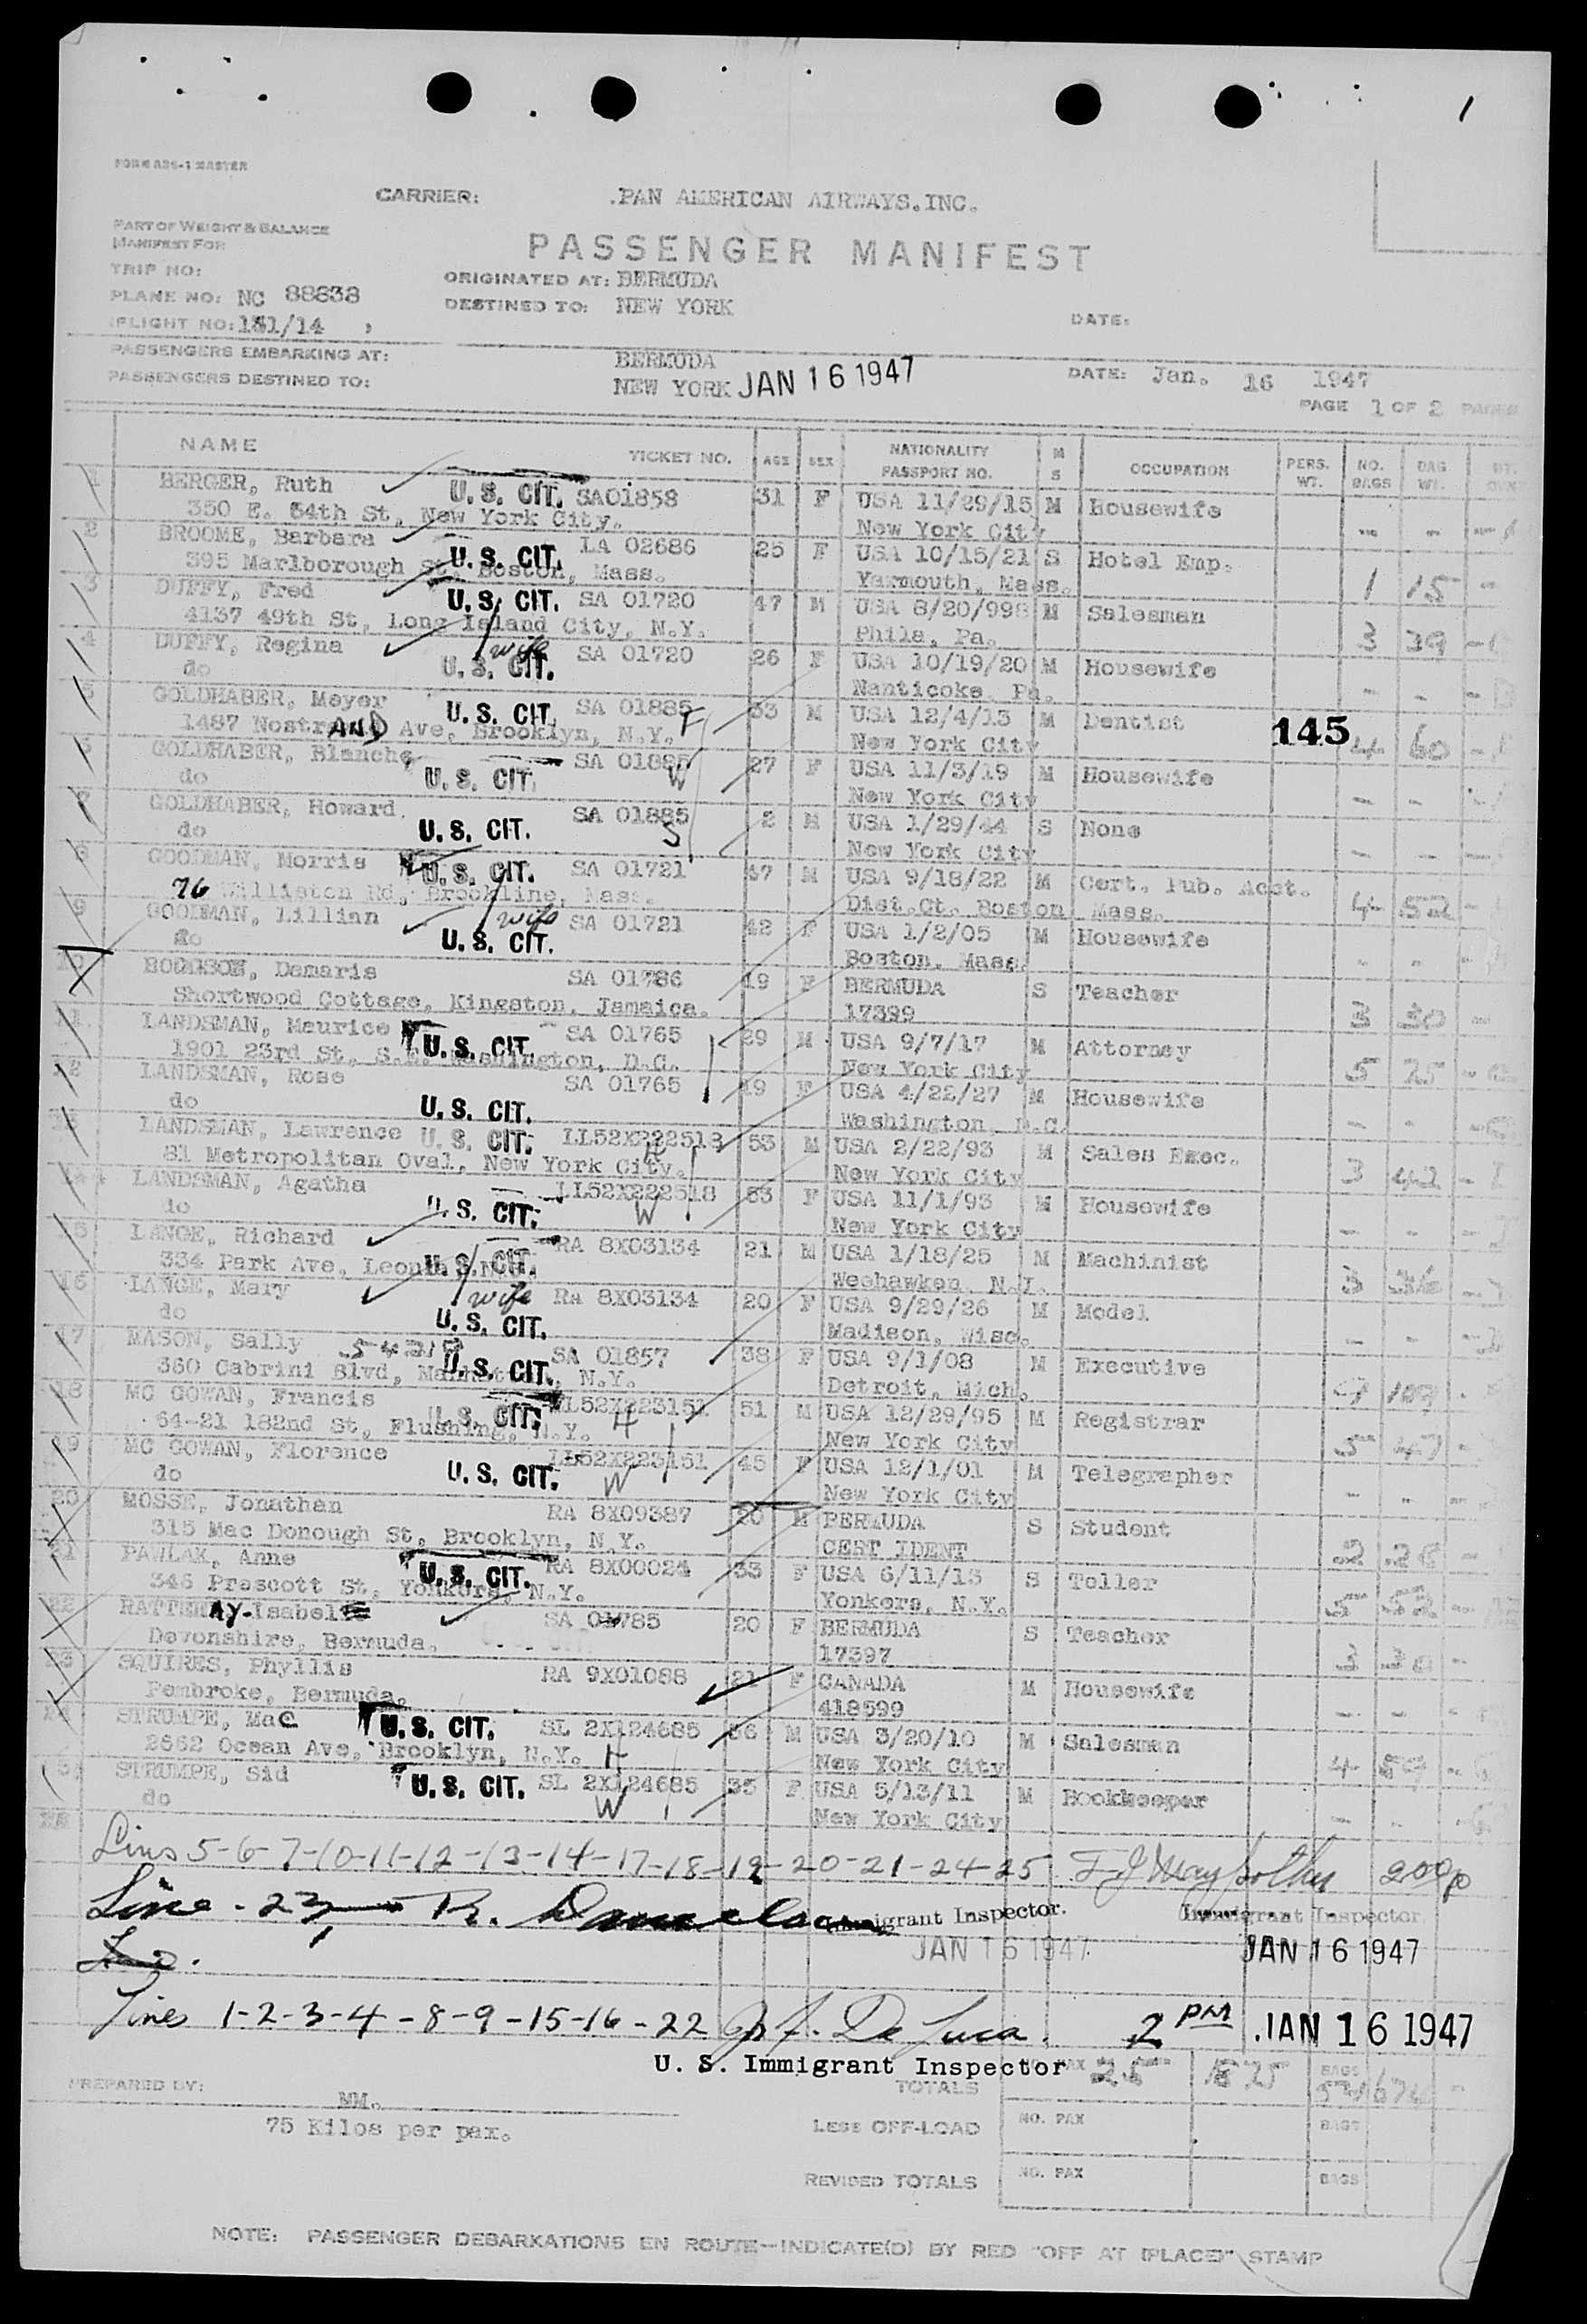 FORM A24-1 MASTER
CARRIER: PAN AMERICAN AIRWAYS.INC.
PART OF WEIGHT & BALANCE
MANIFEST FOR
PASSENGER MANIFEST
TRIP NO:
ORIGINATED AT: BERMUDA
PLANE NO: NC 88838
DESTINED TO: NEW YORK
DATE:
FLIGHT NO: 131/14
PASSENGERS EMBARKING AT: BERMUDA
PASSENGERS DESTINED TO: NEW YORK JAN 16 1947 DATE: Jan. 16 1947
PAGE 1 OF 2 PAGES
NAME TICKET NO. AGE SEX NATIONALITY PASSPORT NO. M S OCCUPATION PERS. WT. NO. BAGS BAG WT.
1 BERGER, Ruth U. S. CIT. SA01858 31 F USA 11/29/15 M Housewife
350 E. 54th St, New York City. New York City
2 BROOME, Barbara U. S. CIT. LA 02686 25 F USA 10/15/21 S Hotel Emp.
395 Marlborough St, Boston, Mass. Yarmouth, Mass. 1 15
3 DUFFY, Fred U. S. CIT. SA 01720 47 M USA 8/20/998 M Salesman
4137 49th St, Long Island City, N.Y. Phila, Pa. 3 39
4 DUFFY, Regina wife U. S. CIT. SA 01720 26 F USA 10/19/20 M Housewife
do Nanticoke, Pa.
5 GOLDHABER, Meyer U. S. CIT. SA 01885 33 M USA 12/4/13 M Dentist 145
1487 NostrAND Ave, Brooklyn, N.Y. F New York City 4 60
6 GOLDHABER, Blanche U. S. CIT. SA 01885 W 27 F USA 11/3/19 M Housewife
do New York City
7 GOLDHABER, Howard. U. S. CIT. SA 01885 S 2 M USA 1/29/44 S None
do New York City
8 GOODMAN, Morris U. S. CIT. SA 01721 47 M USA 9/18/22 M Cert. Pub. Acct.
76 Williston Rd, Brookline, Mass. Dist.Ct. Boston Mass. 4 52
9 GOODMAN, Lillian wife U. S. CIT. SA 01721 42 F USA 1/2/05 M Housewife
do Boston, Mass.
10 Damaris SA 01786 19 F BERMUDA S Teacher
Shortwood Cottage, Kingston, Jamaica. 17399 3 30
11 LANDSMAN, Maurice U. S. CIT. SA 01765 29 M USA 9/7/17 M Attorney
1901 23rd St, S.E. Washington, D.C. New York City 5 25
12 LANDSMAN, Rose U. S. CIT. SA 01765 19 F USA 4/22/27 M Housewife
do Washington, D.C.
13 LANDSMAN, Lawrence U. S. CIT. LL52X222518 H 53 M USA 2/22/93 M Sales Exec.
81 Metropolitan Oval, New York City. New York City 3 42
14 LANDSMAN, Agatha U. S. CIT. LL52X222518 W 53 F USA 11/1/93 M Housewife
do New York City
15 LANGE, Richard U. S. CIT. RA 8X03134 21 M USA 1/18/25 M Machinist
334 Park Ave, Leonia N.J. Weehawken, N.J. 3 36
16 LANGE, Mary wife U. S. CIT. RA 8X03134 20 F USA 9/29/26 M Model
do Madison, Wisc.
17 MASON, Sally U. S. CIT. SA 01857 38 F USA 9/1/08 M Executive
360 Cabrini Blvd, N.Y. Detroit, Mich. 9 109
18 MC GOWAN, Francis U. S. CIT. LL52X223151 51 M USA 12/29/95 M Registrar
64-21 182nd St, Flushing, N.Y. H New York City 5 47
19 MC GOWAN, Florence U. S. CIT. LL52X223151 W 45 F USA 12/1/01 M Telegrapher
do New York City
20 MOSSE, Jonathan RA 8X09387 20 M BERMUDA S Student
315 Mac Donough St, Brooklyn, N.Y. CERT IDENT 2 26
21 PAWLAK, Anne U. S. CIT. RA 8X00024 33 F USA 6/11/13 S Teller
346 Prescott St, Yonkers, N.Y. Yonkers, N.Y. 5 52
22 RATTERAY, Isabel SA 01785 20 F BERMUDA S Teacher
Devonshire, Bermuda. 17397 3 30
23 SQUIRES, Phyllis RA 9X01088 21 F CANADA M Housewife
Pembroke, Bermuda. 418599
24 STRUMPE, Mac U. S. CIT. SL 2X124685 36 M USA 3/20/10 M Salesman
2662 Ocean Ave, Brooklyn, N.Y. H New York City 4 59
25 STRUMPE, Sid U. S. CIT. SL 2X124685 W 35 F USA 5/13/11 M Bookkeeper
do New York City
Lines 5-6-7-10-11-12-13-14-17-18-19-20-21-24-25 200p
Line - 23 R. Daniels Immigrant Inspector. Immigrant Inspector
JAN 16 1947 JAN 16 1947
Lines 1-2-3-4-8-9-15-16-22 De Luca 2 PM JAN 16 1947
U. S. Immigrant Inspector
TOTALS NO. PAX 25 1875 BAGS
PREPARED BY: MM.
75 Kilos per pax.
LESS OFF-LOAD NO. PAX BAGS
REVISED TOTALS NO. PAX BAGS
NOTE: PASSENGER DEBARKATIONS EN ROUTE—INDICATE(D) BY RED "OFF AT (PLACE)" STAMP